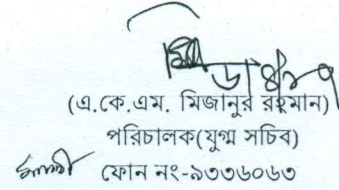 (এ.কে.এম. মিজানুর রহমান)
পরিচালক(যুগ্ম সচিব)
ফোন নং-৯৩৩৬০৬৩